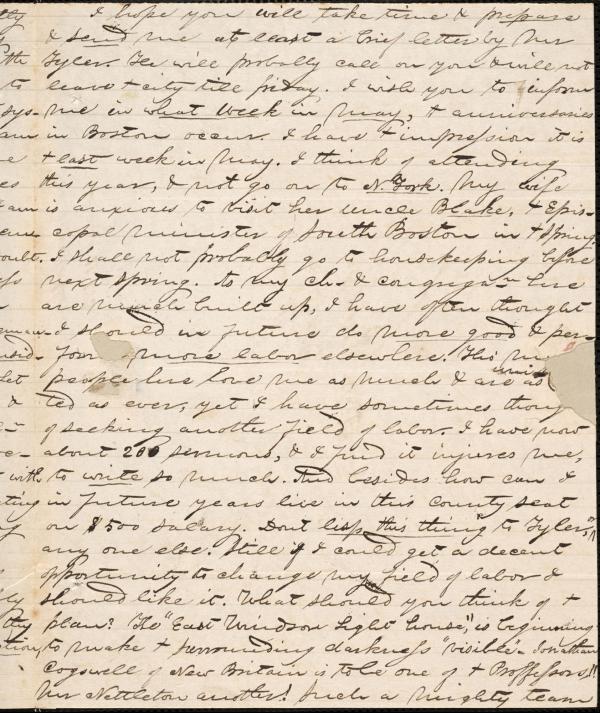 I hope you will take time & prepare
& send me at least a brief letter by Mr
Tyler. He will probably call on you & will not
leave + city till friday. I wish you to inform
me in what week in May, + anniversaries
in Boston occur. I have + impression it is
+ last week in May. I think of attending
this year, & not go on to N. York. My wife
is anxious to visit her uncle Blake, + Epis-
copal minister of South Boston in + spring.
I shall not probably go to housekeeping before
next spring. As my ch. & congrega-n here
are much built up, I have often thought
I should in future do more good & per-
form more labor elsewhere. Tho' my
people here love me as much & are as uni-
ted as ever, yet I have sometimes thoug
of seeking another field of labor. I have now
about 200 sermons, & I find it injures me,
to write so much. And besides how can I
in future years live in this county seat
on $500 salary. Dont lisp this thing to Tyler, or
any one else. Still if I could get a decent
opportunity to change my field of labor I
should like it. What should you think of +
plan? The "East Windsor Light house," is beginning
to make + surrounding darkness "visible". Jonathan
Cogswell of New Britain is to be one of + Proffessors!!
Mr Nettleton another! Such a mighty team